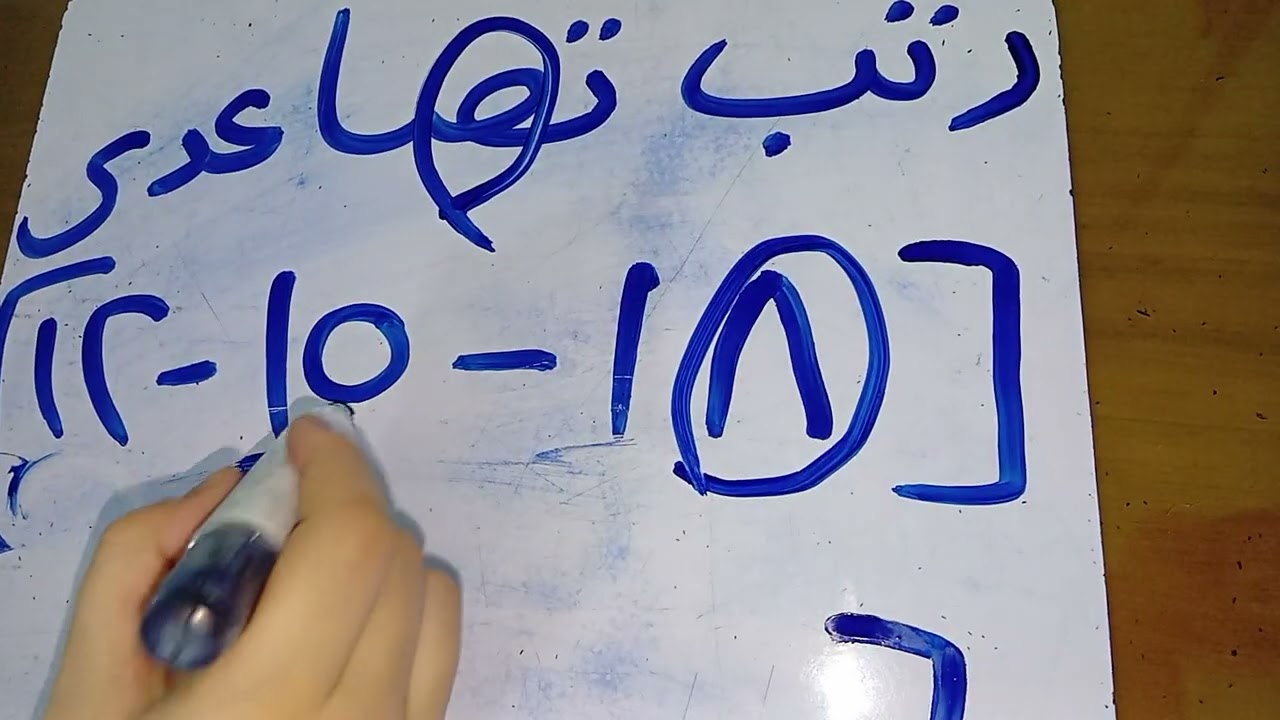 رتب تصاعدى
[١٨ - ١٥ - ١٢]